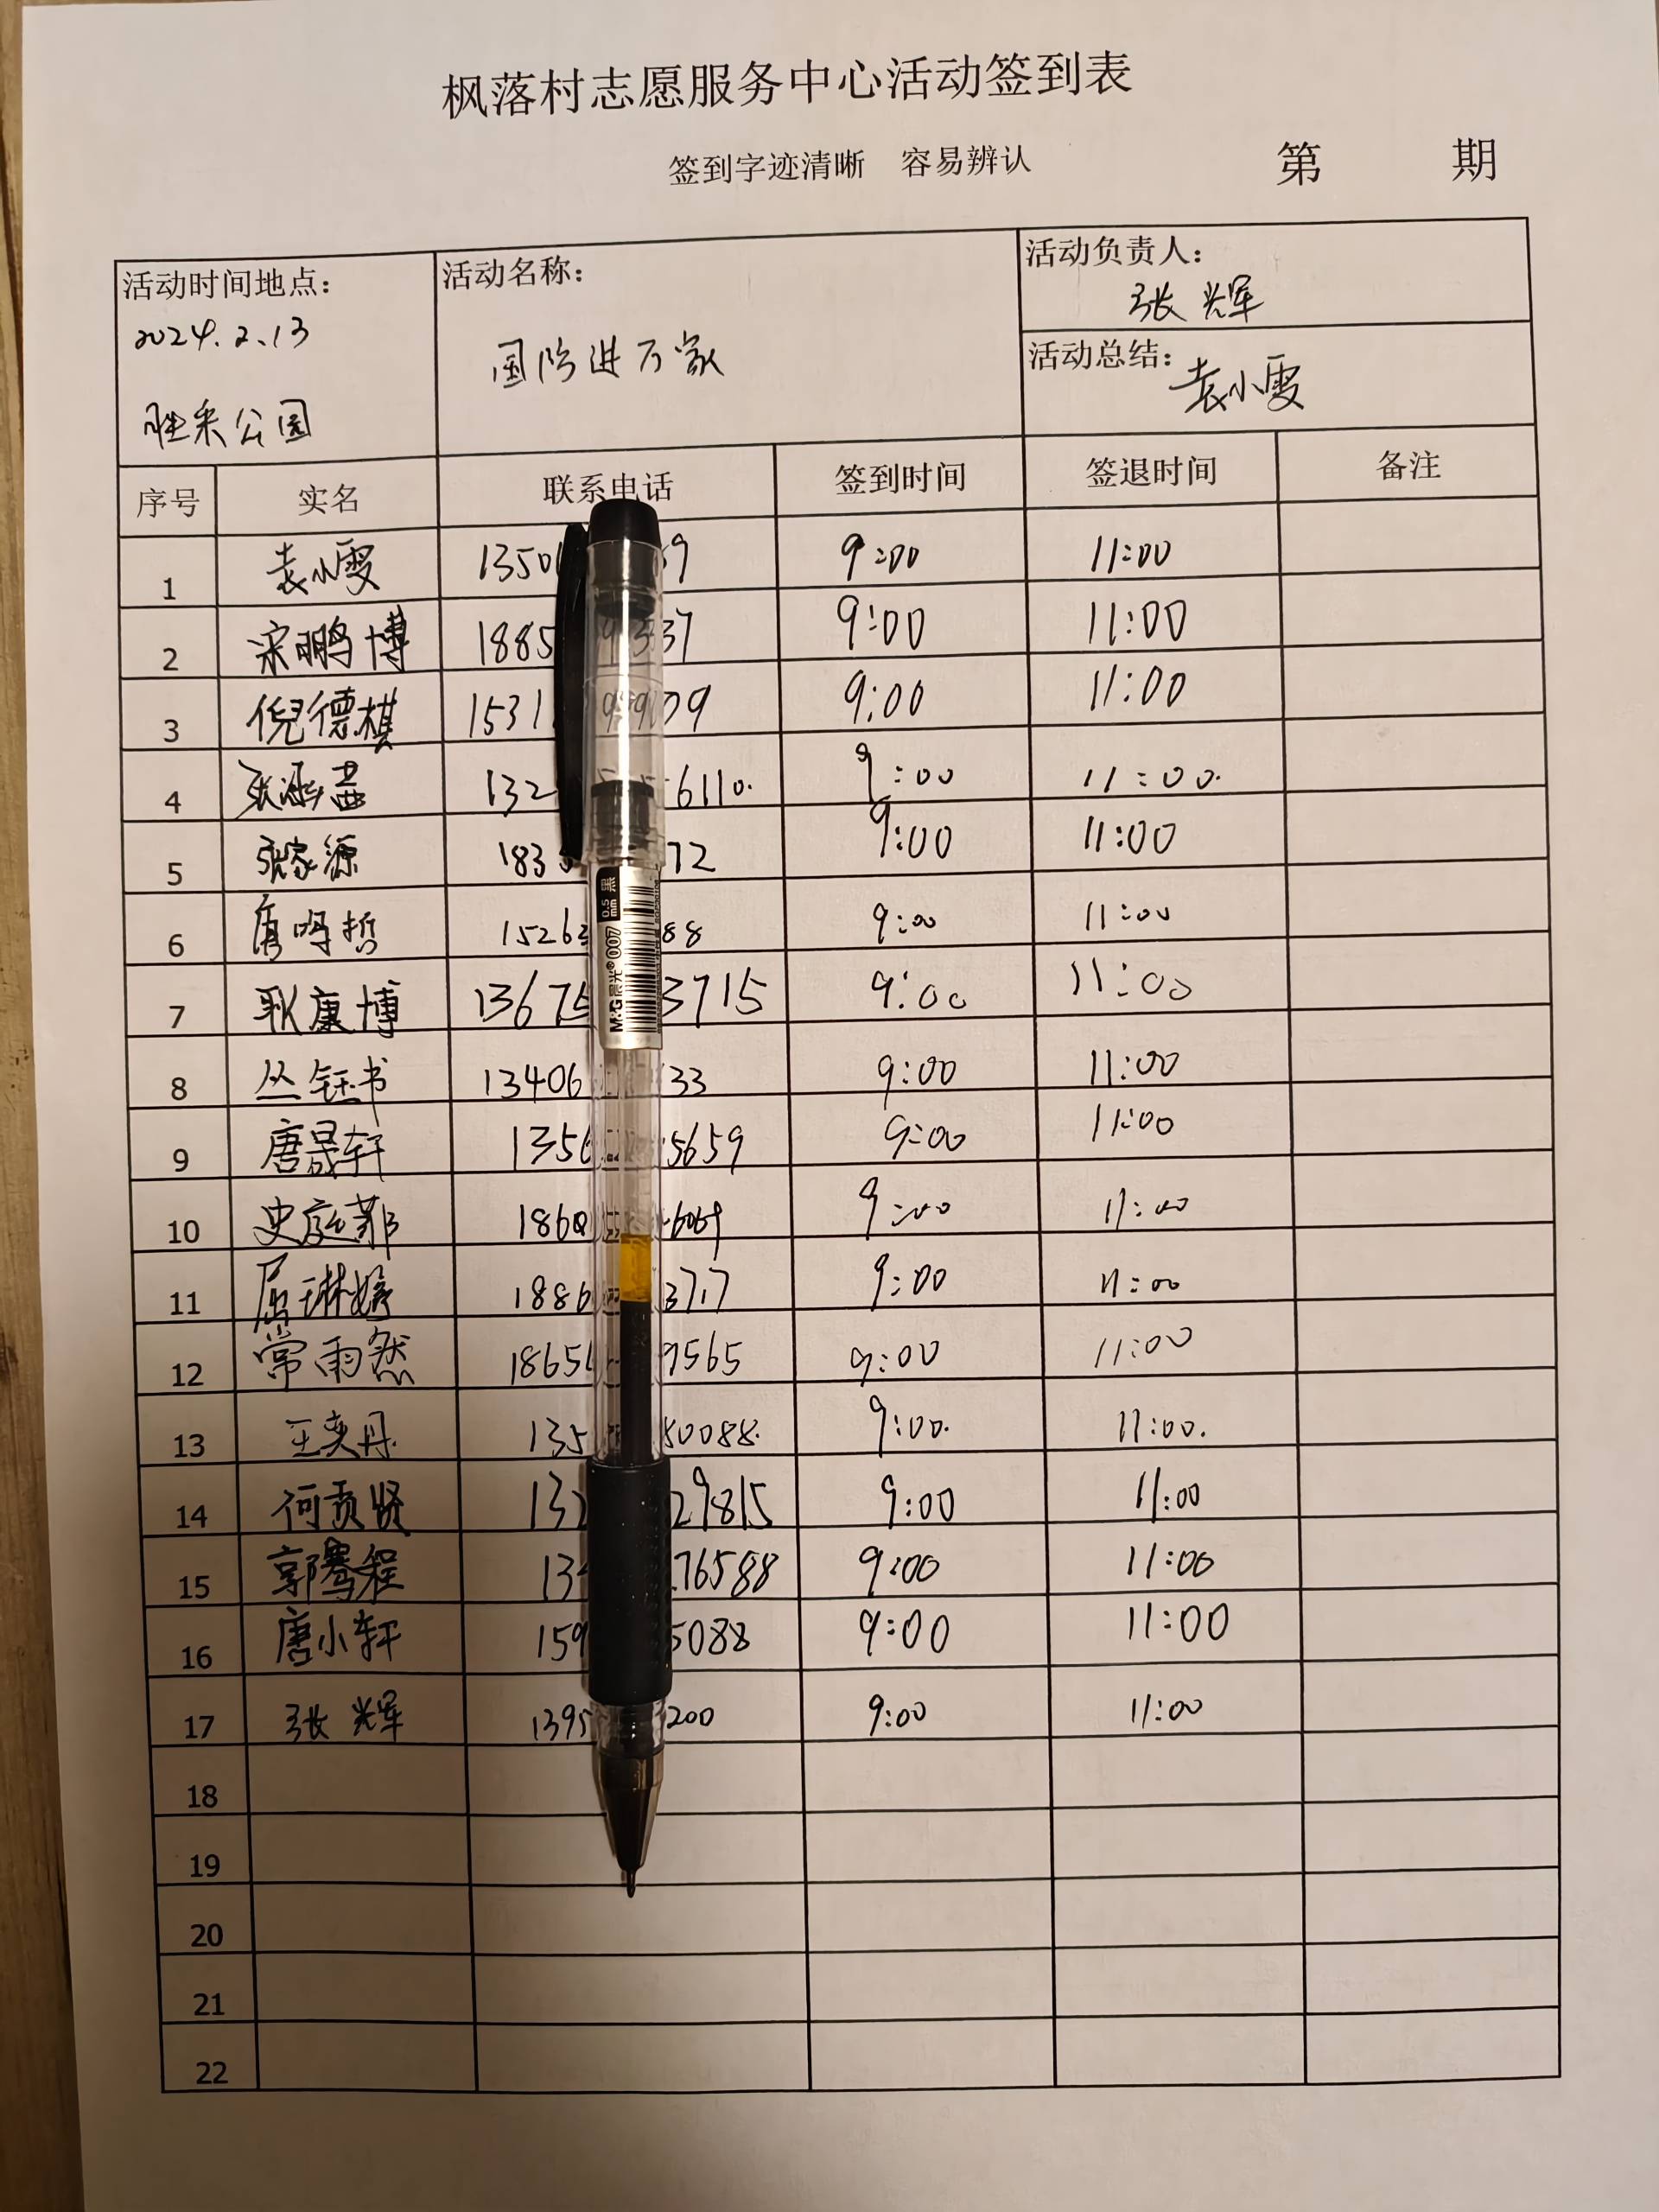 枫落村志愿服务中心活动签到表
签到字迹清晰 容易辨认 第 期
活动时间地点: 活动名称: 活动负责人:
2024.2.13 张辉
国防进万家 活动总结: 袁小雯
胜采公园
序号 实名 联系电话 签到时间 签退时间 备注
1 袁小雯 1350 59 9:00 11:00
2 宋鹏博 1885 37 9:00 11:00
3 倪德棋 1531 09 9:00 11:00
4 张涵 132 6110. 9:00 11:00.
5 张家源 183 72 9:00 11:00
6 唐鸣哲 1526 88 9:00 11:00
7 耿康博 13675 3715 9:00 11:00
8 丛钰书 13406 33 9:00 11:00
9 唐晟轩 1356 5659 9:00 11:00
10 史庭 1860 6069 9:00 11:00
11 屈琳婷 1886 3717 9:00 11:00
12 常雨然 1865 9565 9:00 11:00
13 王奕丹 135 80088. 9:00. 11:00.
14 何贡贤 132 29815 9:00 11:00
15 郭骞程 13 76588 9:00 11:00
16 唐小轩 159 5088 9:00 11:00
17 张辉 1395 200 9:00 11:00
18
19
20
21
22
0.5mm 黑
M&G 晨光® 007